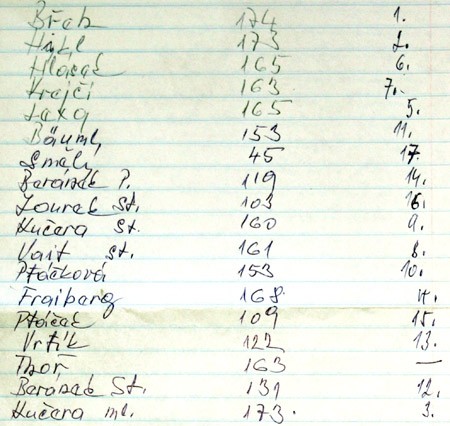 Břach 174 1.
Hickl 173 2.
Hlaváč 165 6.
Krejčí 163 7.
Jaxa 165 5.
Bäuml 153 11.
Smělý 45 17.
Beránek P. 119 14.
Zourek St. 103 16.
Kučera St. 160 9.
Vait st. 161 8.
Ptáčková 153 10.
Fraiberg 168 4.
Ptáček 109 15.
Vrtík 122 13.
163 —
Beránek St. 131 12.
Kučera ml. 173. 3.